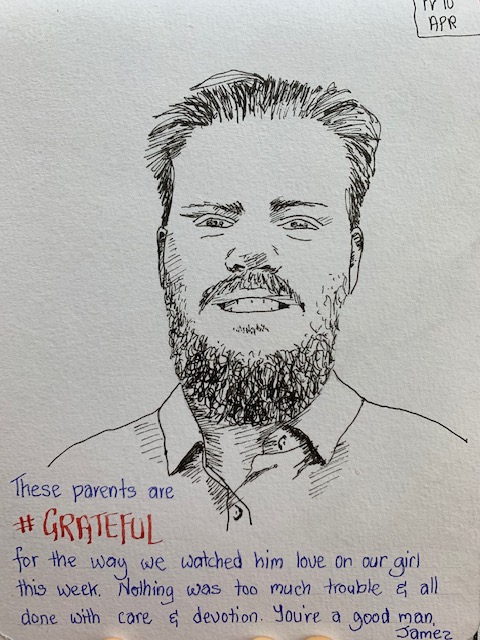 APR
These parents are
# GRATEFUL
for the way we watched him love on our girl
this week. Nothing was too much trouble & all
done with care & devotion. You're a good man,
Jamez